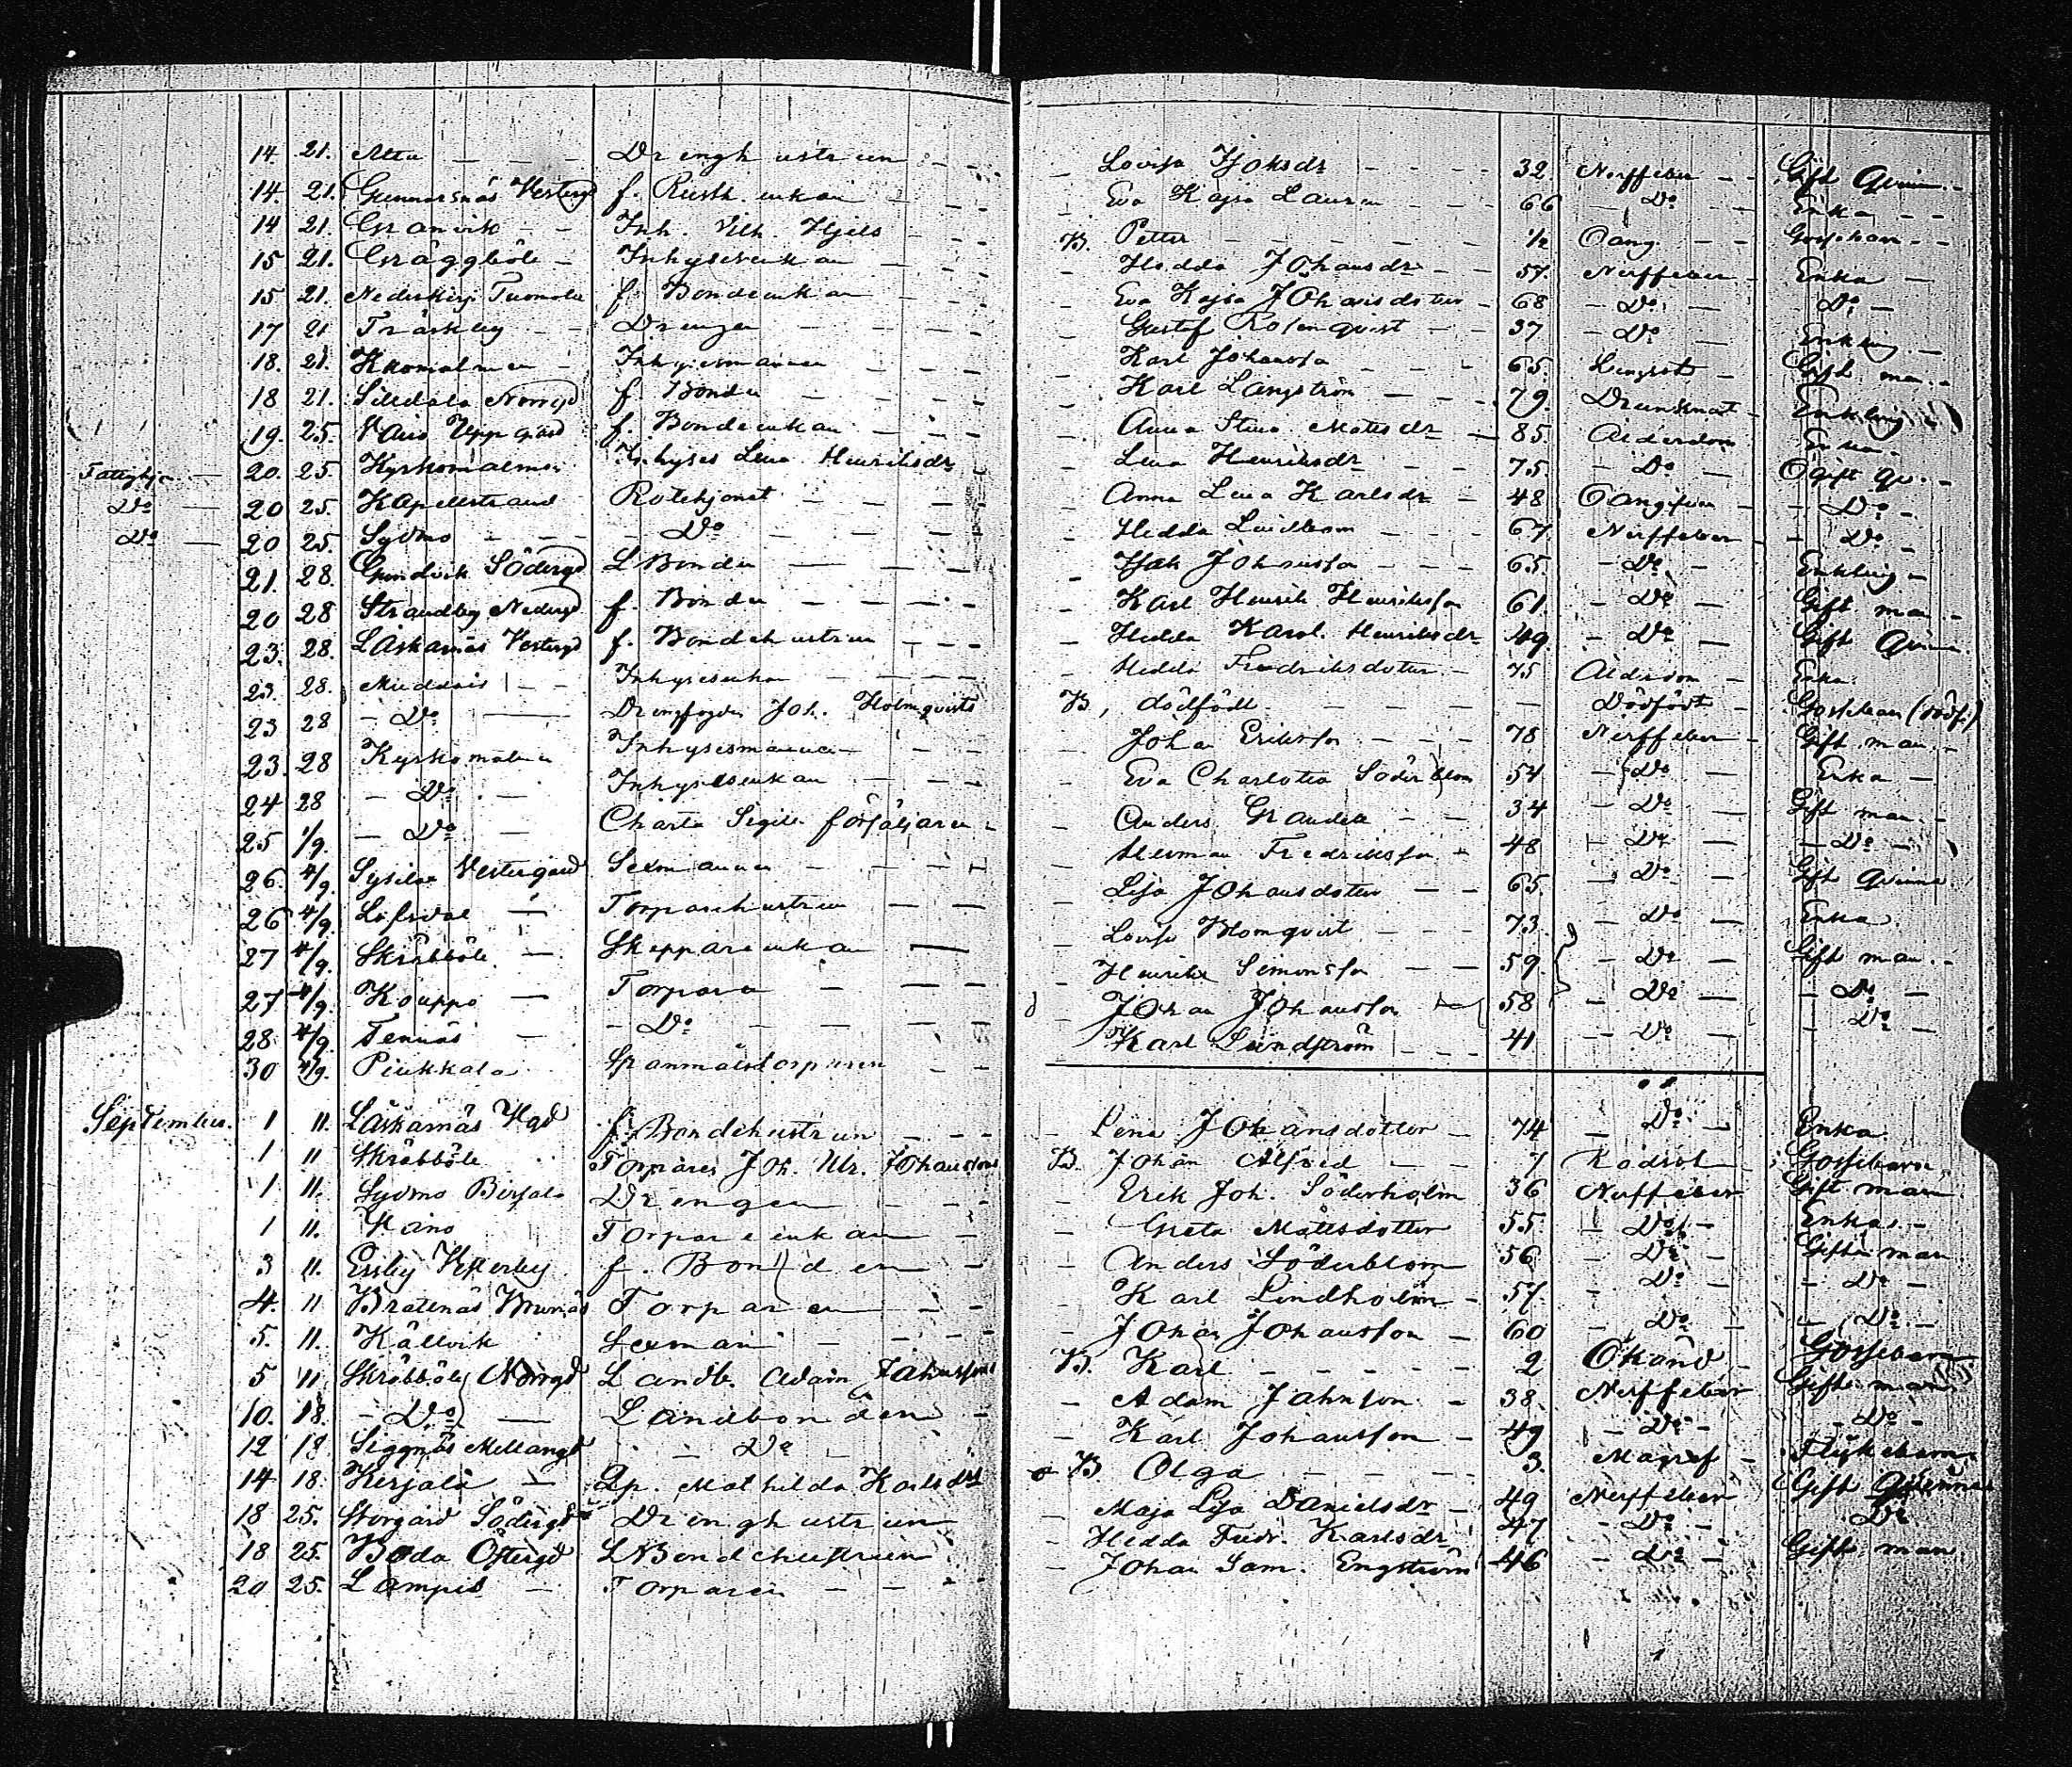 14. 21. Attu — — Drenghustrun - - Lovisa Isaksdr - - 32. Nerffeber - - Gift Qvin. -
14. 21. Gunnarsnäs Vesterg f. Rusth. enkan - - Eva Kajsa Laurin - - 66 - Do - Enka - -
14 21. Granvik - - Inh. Vilh. Hjels - - B. Petter - - 1/2 Oäng. - - Gossebarn - -
15 21. Gräggböle - Inhysesenkan - - Hedda Johansdr - - 57. Nerffeber - Enka -
15 21. Nederkirj. Tuomola f. Bondeenkan - - Eva Kajsa Johansdotter - 68 - Do - - Do -
17 21 Träskby - - Drengen - - Gustaf Rosenqvist - - 37 - Do - Enkling -
18. 21. Kyrkomalmen - Inhysesmannen - - Karl Johansson - - 65. Lungsot - Gift man -
18 21. Silldala Norrgd f. Bonden - - Karl Långström - - 79. Drunknat - Enkling
19. 25. Vånå Uppgård f. Bondeenkan - - Anna Stina Matsdr - 85. Ålderdom Enka -
Fattighj. — 20. 25. Kyrkomalmen Inhyses Lena Henriksdr - Lena Henriksdr - - 75. - Do - Ogift qv. -
Do — 20 25. Kapellstrand Rotehjonet - - Anna Lena Karlsdr - 48 - Do -
Do — 20 25. Sydmo - - - Do - - Hedda Lindblom - - 67 Nerffeber - - Do -
21. 28. Gundvik Södergd L Bonden - - Isak Johansson - - 65. - Do - Enkling -
20 28 Strandby Nedergd f. Bonden - - Karl Henrik Henriksson 61. - Do - Gift man -
23. 28. Låskarnäs Vestergd f. Bondehustrun - - Hedda Karol. Henriksdr 49. - Do - Gift Qvin.
23. 28. Muddais - - Inhysesenkan - - Hedda Fredriksdotter - 75 Ålderdom - Enka.
23 28 - Do — Drengfogden Joh. Holmqvists B, dödfödt - - Dödfödt - Gossebarn (dödf.)
23. 28 Kyrkomalmen Inhysesmannen - - Johan Eriksson - - 78 Nerffeber - Gift man. -
24 28 - Do - Inhysesenkan - - Eva Charlotta Söderblom 54 - Do - Enka -
25 1/9. - Do - Charta Sigill. försäljaren - Anders Grandell - 34 - Do - Gift man. -
26. 4/9. Sysilax Vestergård Sexmannen - - Herman Fredriksson - 48 - Do - - Do -
26 4/9. Lofsdal - Torparehustrun - - Lisa Johansdotter - - 65. - Do - Gift Qvinna
27 4/9. Skräbböle - Skepparenkan - Lovisa Blomqvist - - 73. - Do - Enka
27 4/9. Kouppo - Torparen - - Henrik Simonsson - - 59. - Do - Gift man. -
28. 4/9. Tennäs - - Do - - Johan Johansson - 58 - Do - - Do -
30 4/9. Piukkala Spanmålstorparen - - Karl Lundström - - 41 - Do - - Do -
September. 1 11. Låskarnäs Vgd f. Bondehustrun - - Lena Johansdotter - 74 - Do - Enka
1 11 Skräbböle Torparen Joh. Ulr. Johanssons B. Johan Alfred - - 7 Rödsot - Gossebarn
1 11. Sydmo Bersala Drengen - - Erik Joh. Söderholm 36 Nerffeber Gift man
1 11. Vånå Torpareenkan - - Greta Mattsdotter 55. - Do - Enka -
3 11. Ersby Vesterby f. Bonden - - Anders Söderblom 56. - Do - Gift man
4. 11 Bratnäs Brunnäs Torparen - - Karl Lindholm - 57. - Do - - Do -
5. 11. Källvik Sexman - - Johan Johansson - 60 - Do - - Do -
5 11 Skräbböle Norrgd Landb. Adam Jahnssons B. Karl - - 2 Okänd - Gossebarn
10. 18. - Do - Landbonden - - Adam Jahnson - 38. Nerffeber Gift man
12 18 Siggnäs Mellangd - Do - - Karl Johansson - 49 - Do - - Do -
14 18. Kirjala - Qp. Mathilda Karlsdrs B. Olga - - 3. Magref - Flickebarn
18 25. Storgård Södergd Drenghustrun - Maja Lisa Danielsdr - 49 Nerffeber Gift Qvinna
18 25. Boda Östergd L Bondehustrun - Hedda Fredr. Karlsdr 47 - Do - Do
20 25. Lampis - Torparen - - Johan Sam. Engström 46 - Do - Gift man